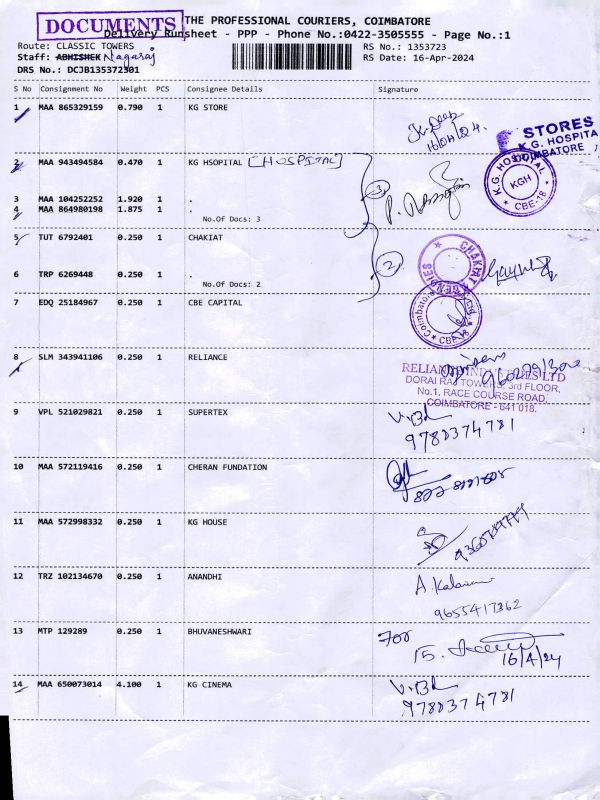 DOCUMENTS
THE PROFESSIONAL COURIERS, COIMBATORE
Delivery Runsheet - PPP - Phone No.:0422-3505555 - Page No.:1
Route: CLASSIC TOWERS
RS No.: 1353723
Staff: ABHISHEK Nagaraj
RS Date: 16-Apr-2024
DRS No.: DCJB135372301
S No Consignment No Weight PCS Consignee Details Signature
1 MAA 865329159 0.790 1 KG STORE
16/04/24.
STORES
K.G. HOSPITAL
COIMBATORE
2 MAA 943494584 0.470 1 KG HSOPITAL [HOSPITAL]
K.G. HOSPITAL
KGH
CBE-18
3 MAA 104252252 1.920 1 .
4 MAA 864980198 1.875 1 .
No.Of Docs: 3
3
5 TUT 6792401 0.250 1 CHAKIAT
2
CHAKIAT AGENCIES
6 TRP 6269448 0.250 1 .
No.Of Docs: 2
7 EDQ 25184967 0.250 1 CBE CAPITAL
Coimbatore
CBE-18
8 SLM 343941106 0.250 1 RELIANCE
RELIANCE INDUSTRIES LTD
DORAI RAJ TOWERS, 3rd FLOOR,
No.1, RACE COURSE ROAD,
COIMBATORE - 641 018.
9 VPL 521029821 0.250 1 SUPERTEX
9788374781
10 MAA 572119416 0.250 1 CHERAN FUNDATION
11 MAA 572998332 0.250 1 KG HOUSE
12 TRZ 102134670 0.250 1 ANANDHI
9655417362
13 MTP 129289 0.250 1 BHUVANESHWARI
For
16/4/24
14 MAA 650073014 4.100 1 KG CINEMA
9788374781